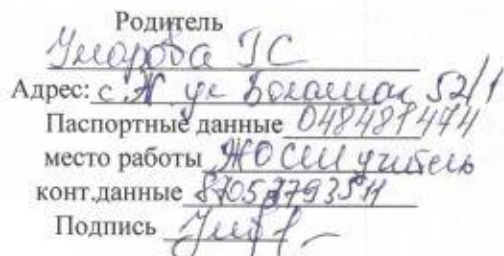 Родитель
Умарова ГС
Адрес: с. ул 52/1
Паспортные данные 048487474
место работы ЖОСШ учитель
конт.данные
Подпись